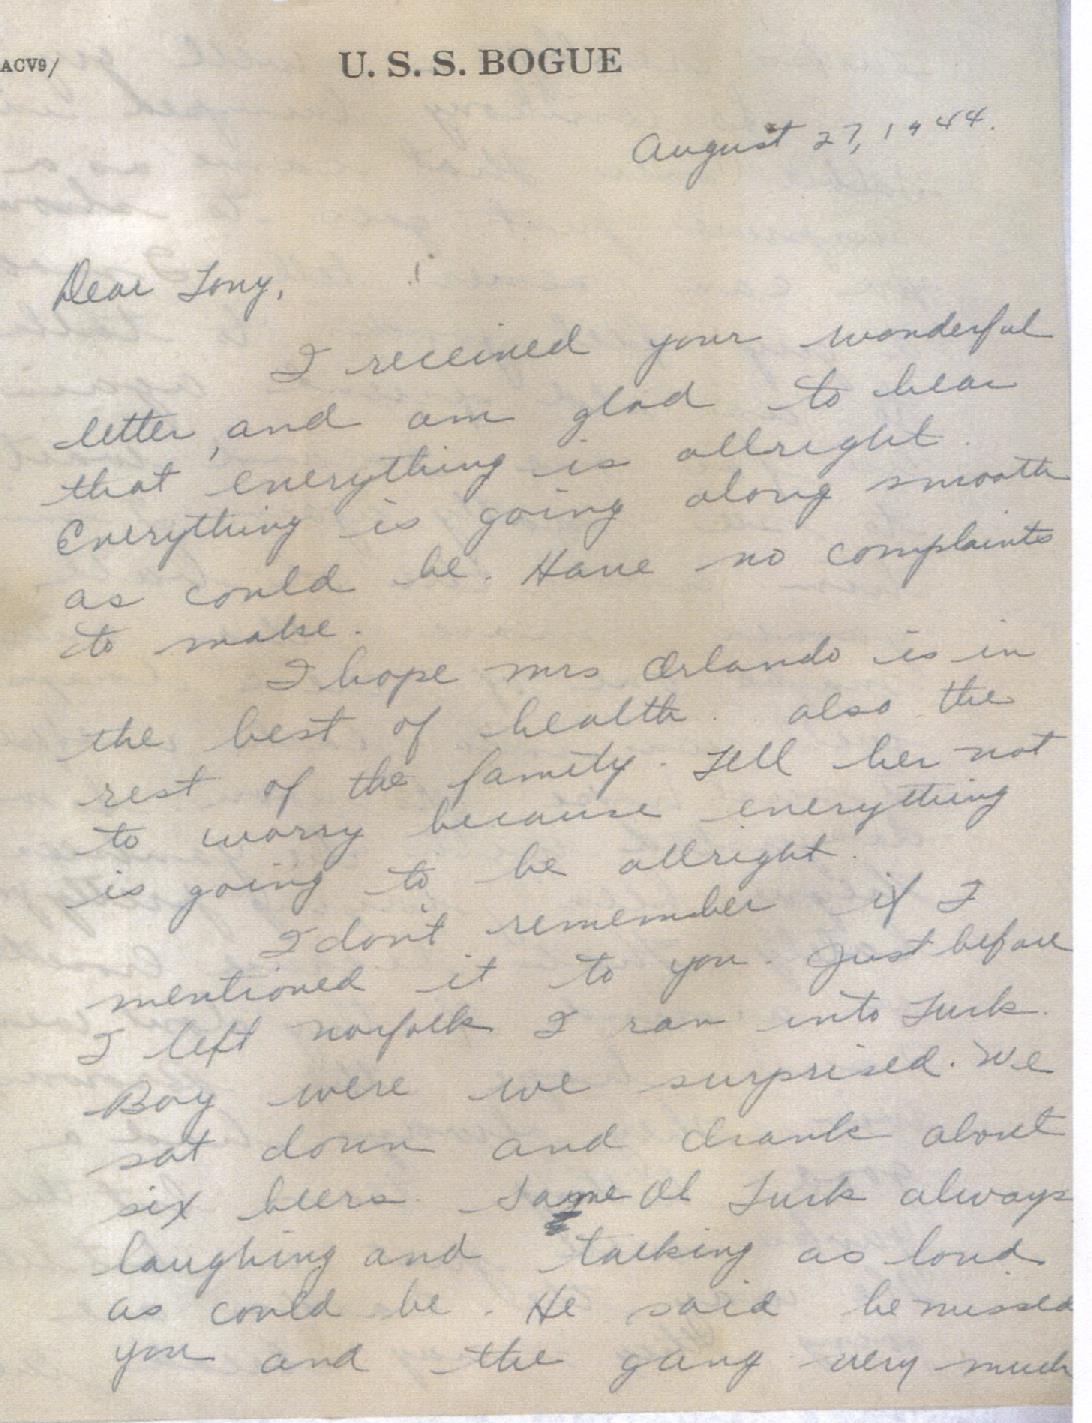 ACV9/
U. S. S. BOGUE
August 27, 1944.
Dear Tony,
I received your wonderful
letter, and am glad to hear
that everything is allright.
Everything is going along smooth
as could be. Have no complaints
to make.
I hope Mrs Orlando is in
the best of health. also the
rest of the family. Tell her not
to worry because everything
is going to be allright.
I don't remember if I
mentioned it to you. Just before
I left Norfolk I ran into Turk.
Boy were we surprised. We
sat down and drank about
six beers. Same Ol Turk always
laughing and talking as loud
as could be. He said he missed
you and the gang very much